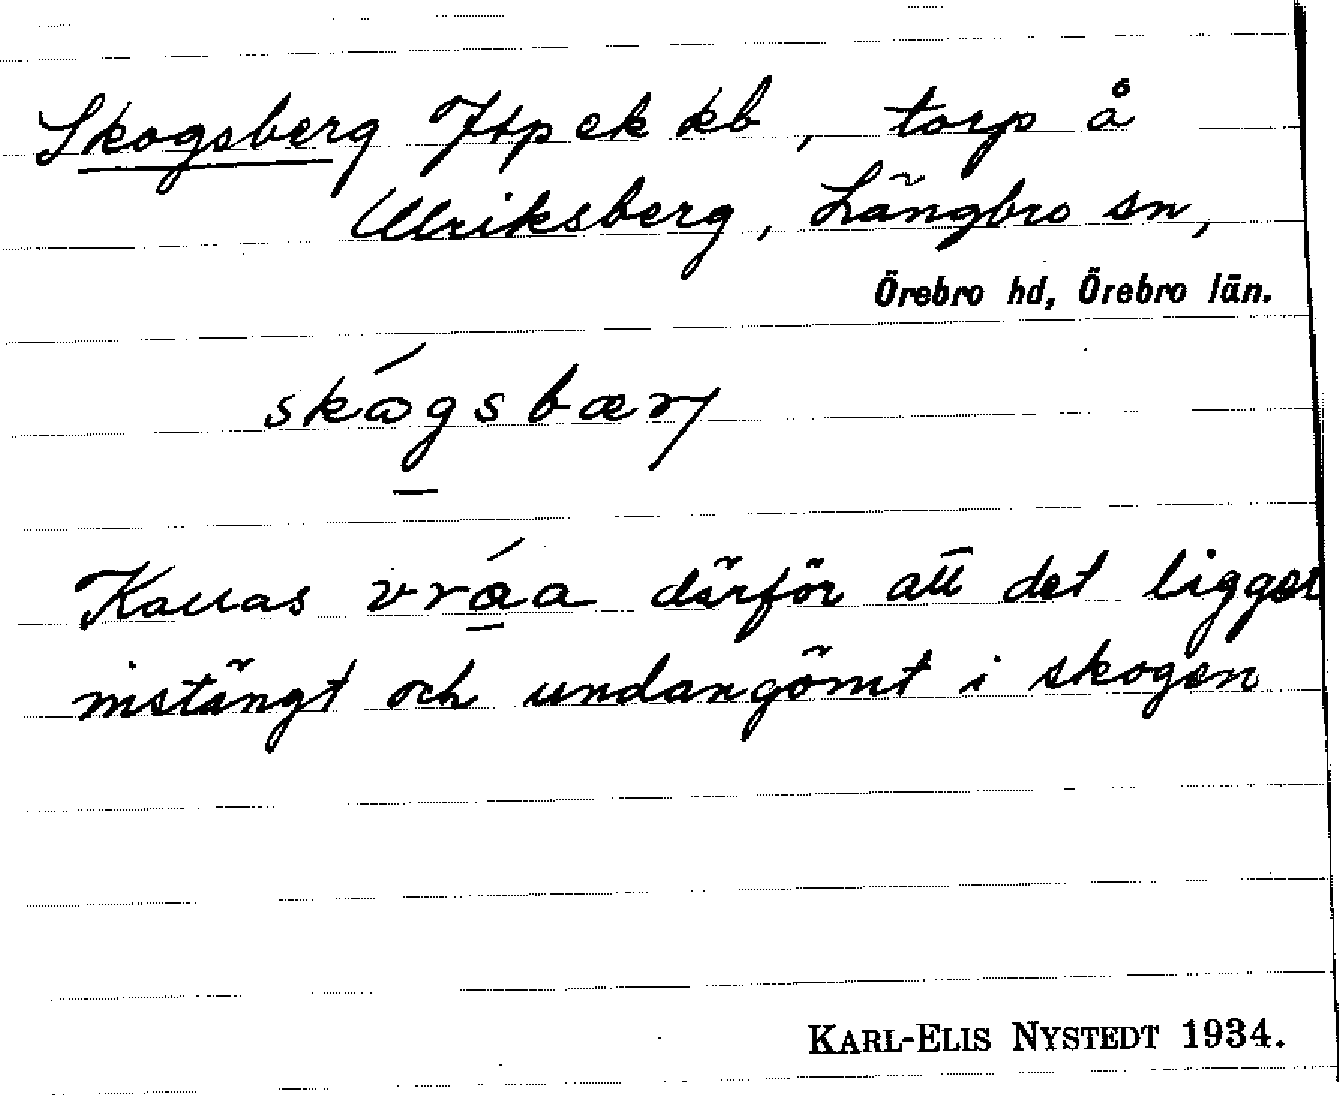 Skogsberg Jtp ek kb, torp å
Ulriksberg, Längbro sn,
Örebro hd, Örebro län.
skógsbær
Kallas vráa därför att det ligger
instängt och undangömt i skogen
KARL-ELIS NYSTEDT 1934.